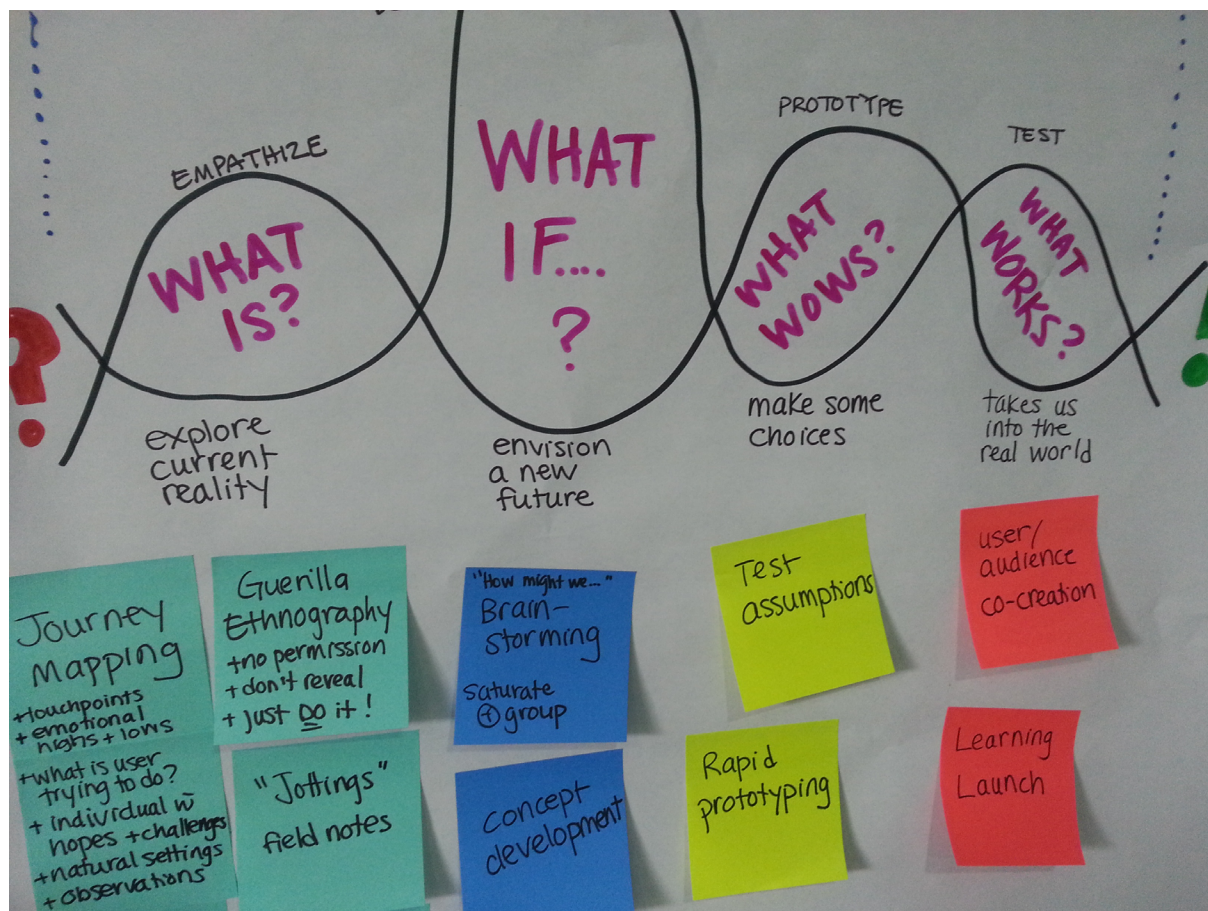 EMPATHIZE
WHAT
IS?
explore
current
reality
WHAT
IF....
?
envision
a new
future
PROTOTYPE
WHAT
WOWS?
make some
choices
TEST
WHAT
WORKS?
takes us
into the
real world
?
!
Journey
Mapping
+touchpoints
+ emotional
highs + lows
+what is user
trying to do?
+ individual w̄
hopes + challenges
+natural settings
+ observations
Guerilla
Ethnography
+no permission
+ don't reveal
+ just DO it!
"Jottings"
field notes
"How might we..."
Brain-
storming
saturate
⊕ group
concept
development
Test
assumptions
Rapid
prototyping
user/
audience
co-creation
Learning
Launch